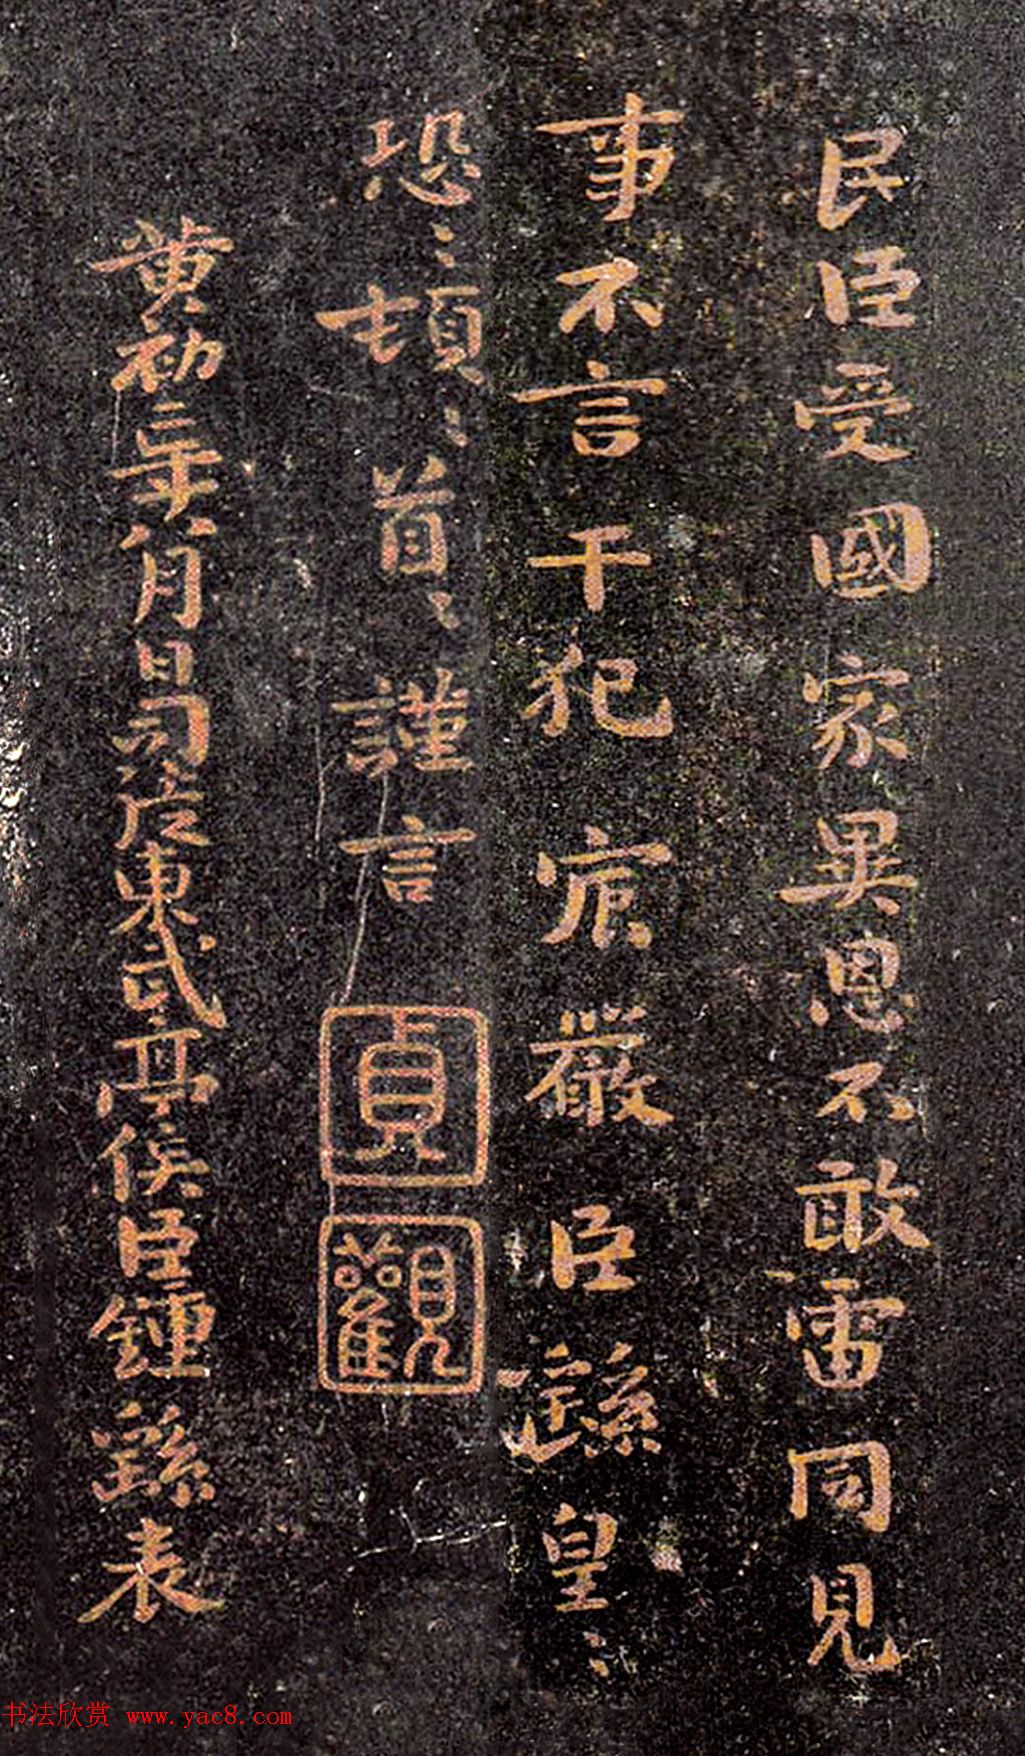 民臣受國家異恩不敢雷同見
事不言干犯宸嚴臣繇皇〻
恐〻頓〻首〻謹言
貞
觀
黄初二年八月日司徒東武亭侯臣鍾繇表
书法欣赏 www.yac8.com